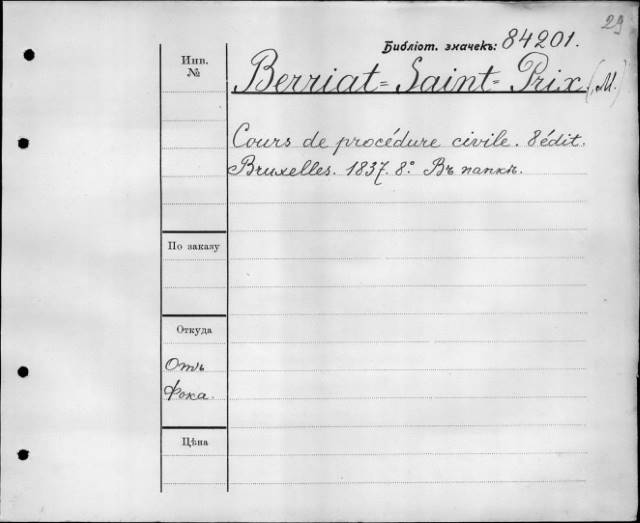 29
Библіот. значекъ: 84201.
Инв. №
Berriat=Saint=Prix. (M.)
Cours de procédure civile. 8 édit.
Bruxelles. 1837. 8.° Въ папкѣ.
По заказу
Откуда
Отъ
Фока.
Цѣна